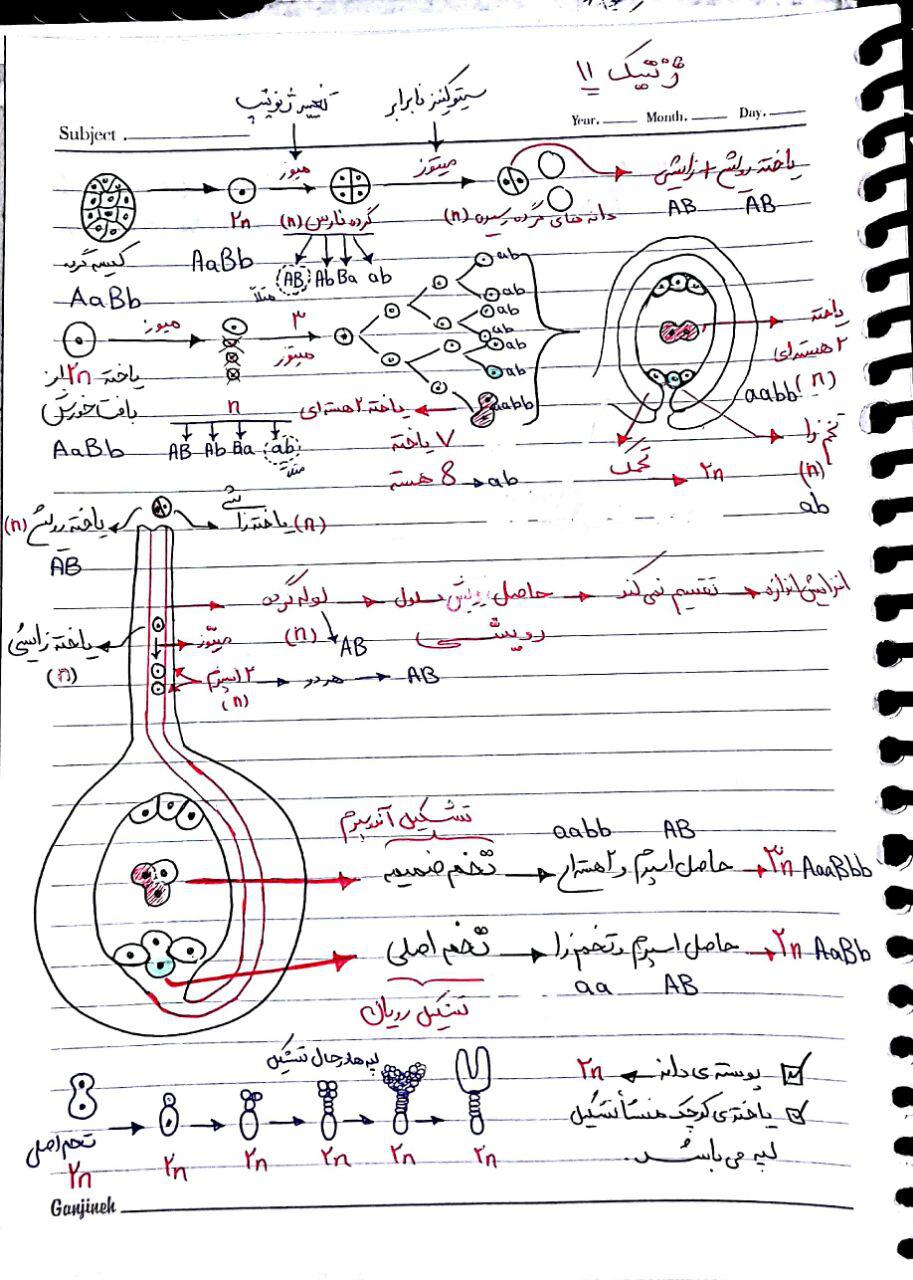 ژنتیک 11
سیتوکینز نابرابر
تغییر ژنوتیپ
Subject . Year. Month. Day.
میوز میتوز یاخته رویشی + زایشی
2n گرده نارس (n) دانه های گرده رسیده (n) AB AB
کیسه گرده AaBb AB Ab Ba ab
AaBb مثلاً
ab
ab
میوز 3 ab یاخته
میتوز ab 2 هسته ای
یاخته 2n از ab (n)
بافت خورش n یاخته 2 هسته ای aabb aabb
AaBb AB Ab Ba ab 7 یاخته تخم زا
مثلاً 8 هسته → ab تخمک → 2n (n)
ab
یاخته رویشی (n) یاخته زایشی (n)
AB
لوله گرده → حاصل رویش سلول رویشی → تقسیم نمی کند → افزایش اندازه
(n) AB
یاخته زایشی میتوز
(n) 2 اسپرم → هر دو → AB
(n)
تشکیل آندوسپرم aabb AB
تخم ضمیمه → حاصل اسپرم و 2 هسته ای → 3n AaaBbb
تخم اصلی → حاصل اسپرم و تخم زا → 2n AaBb
aa AB
تشکیل رویان
لپه ها در حال تشکیل
پوسته ی دانه → 2n
یاخته ی کوچک منشأ تشکیل
لپه می باشد.
تخم اصلی
2n 2n 2n 2n 2n 2n
Ganjineh